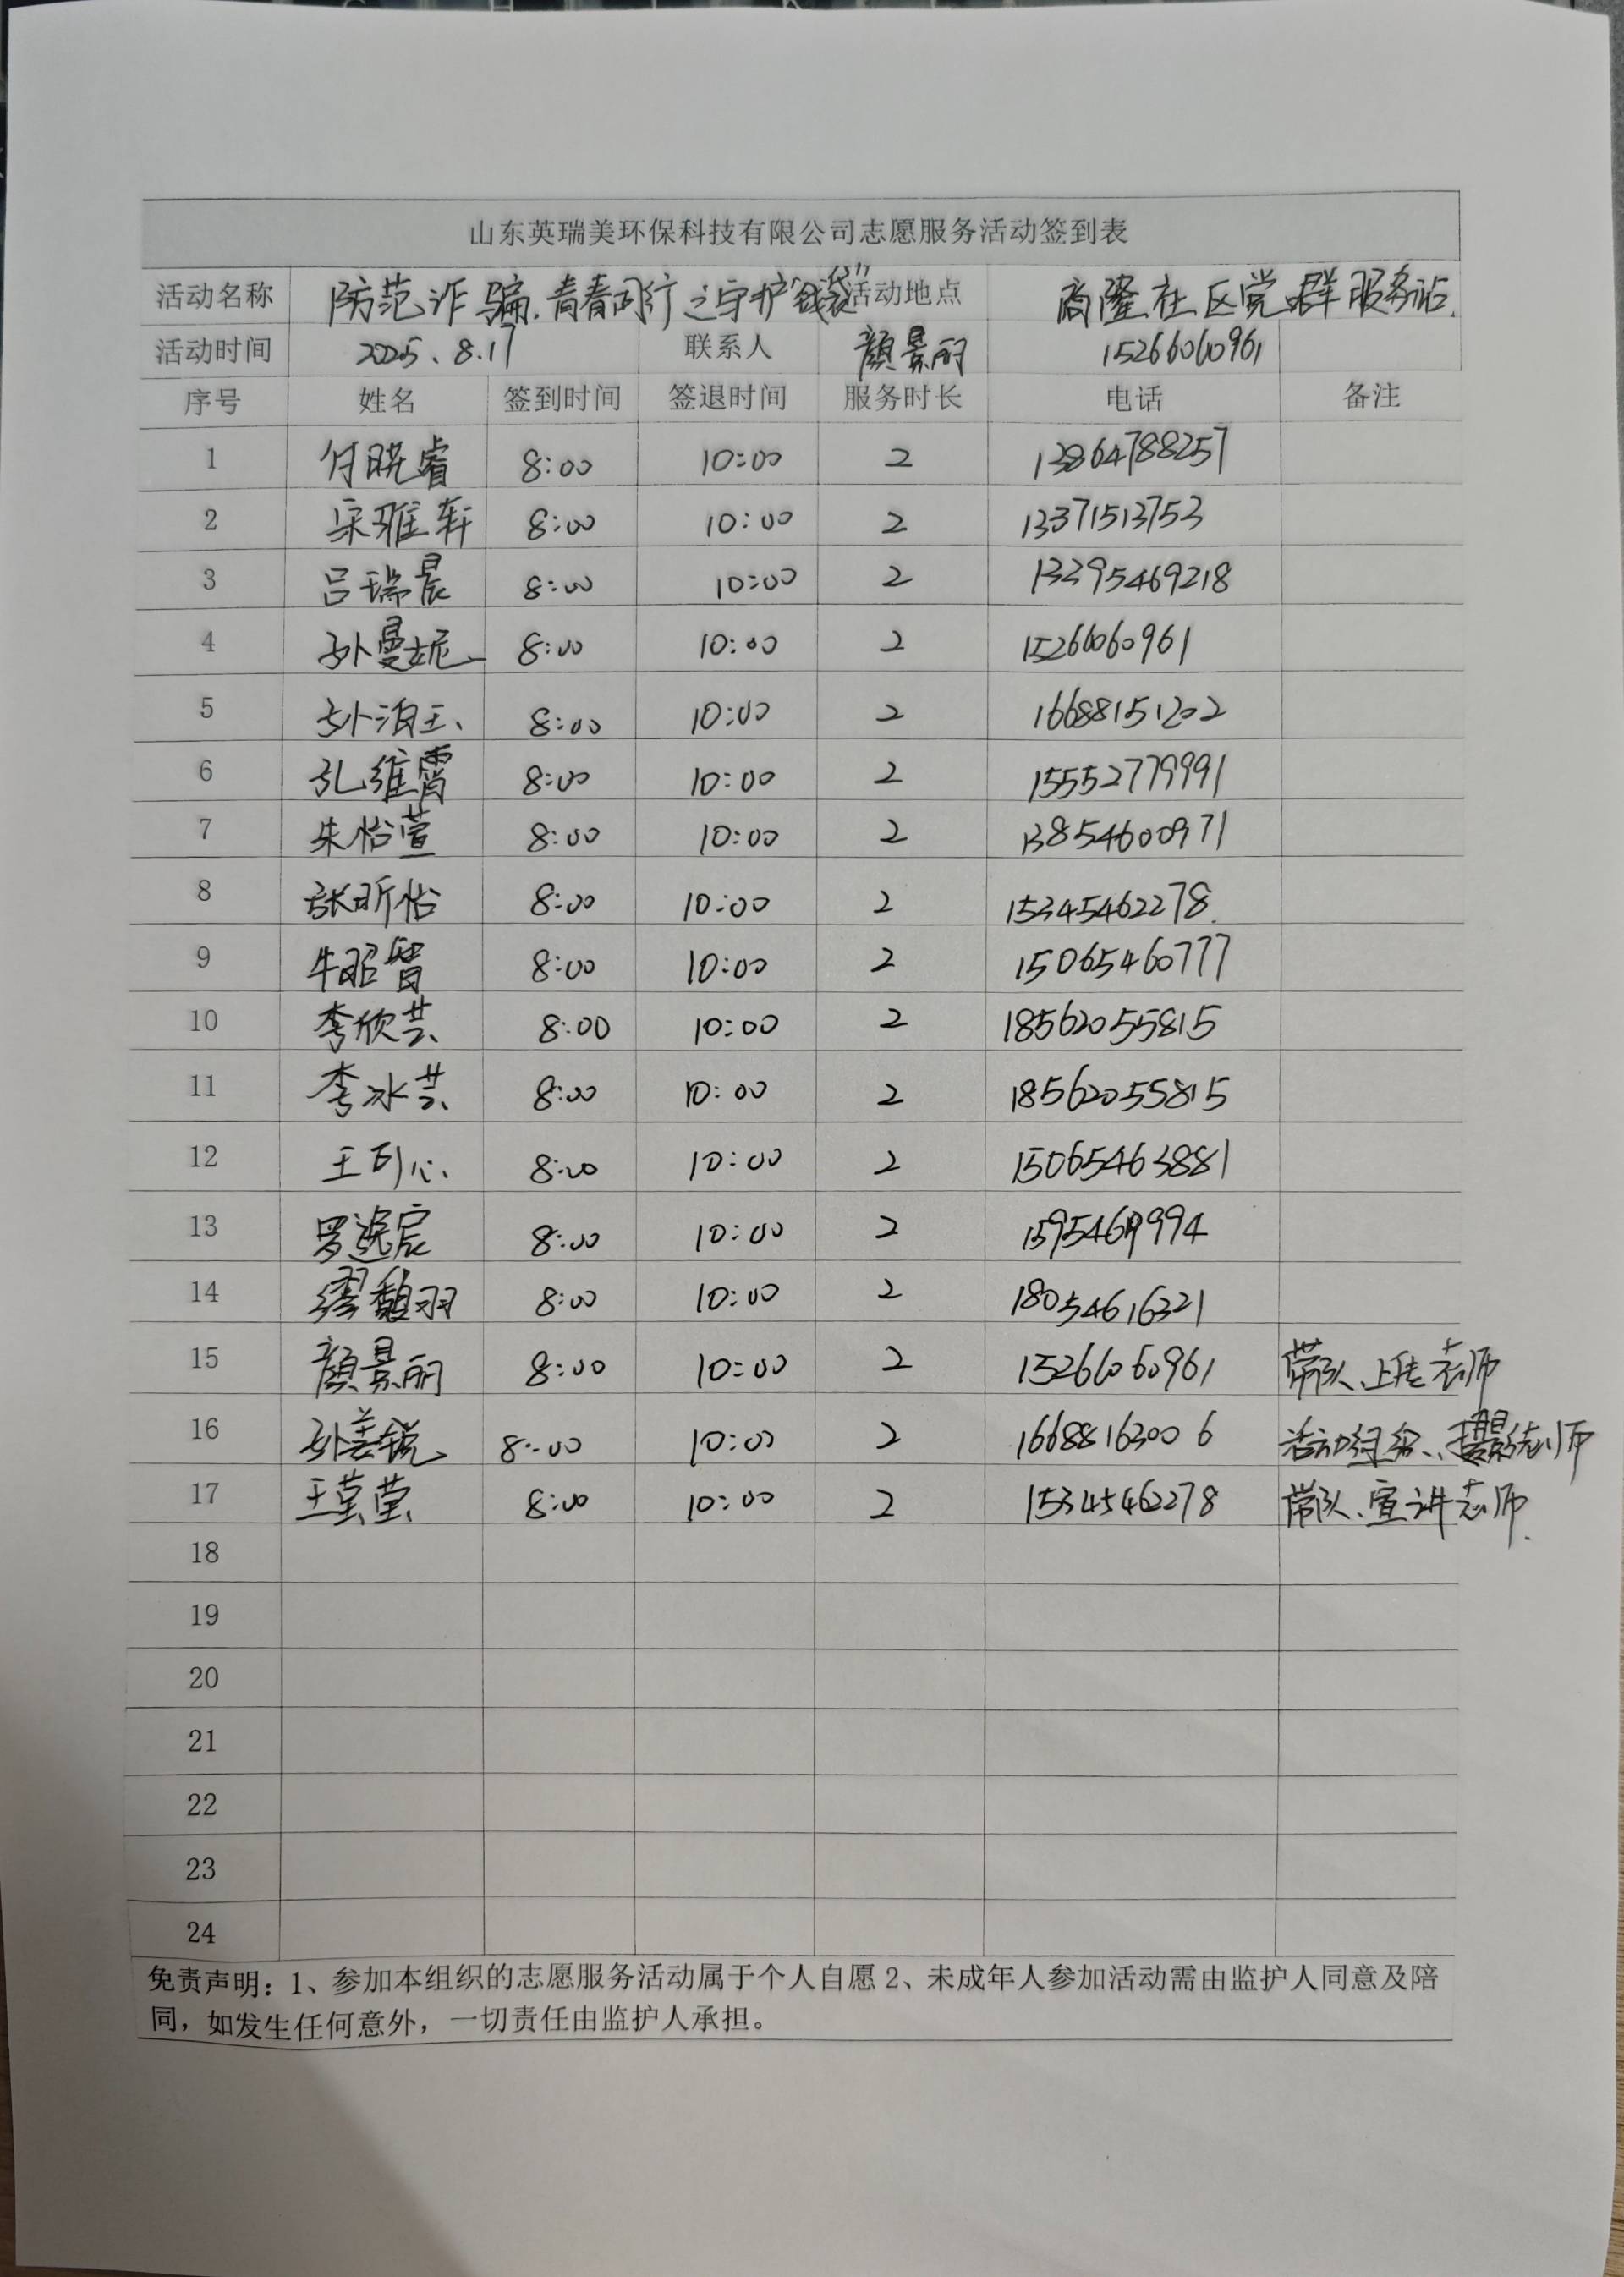 山东英瑞美环保科技有限公司志愿服务活动签到表
活动名称 防范诈骗.青春同行之守护"钱袋" 活动地点 商隆社区党群服务站.
活动时间 2025.8.17 联系人 颜景丽 15266060961
序号 姓名 签到时间 签退时间 服务时长 电话 备注
1 付晓睿 8:00 10:00 2 13864788257
2 宋雅轩 8:00 10:00 2 13371513753
3 吕瑞晨 8:00 10:00 2 13395469218
4 孙曼妮 8:00 10:00 2 15266060961
5 孙泊王 8:00 10:00 2 16688151202
6 孔维霄 8:00 10:00 2 15552779991
7 朱怡萱 8:00 10:00 2 13854600971
8 张昕怡 8:00 10:00 2 15345462278.
9 牛昭智 8:00 10:00 2 15065460777
10 李欣芸 8:00 10:00 2 18562055815
11 李冰芸 8:00 10:00 2 18562055815
12 王可心 8:00 10:00 2 15065463881
13 罗逸宸 8:00 10:00 2
14 缪馥羽 8:00 10:00 2 18054616321
15 颜景丽 8:00 10:00 2 15266060961 带队、上传老师
16 孙美锐 8:00 10:00 2 16688163006 活动组织、摄影老师
17 王莹莹 8:00 10:00 2 15345462278 带队、宣讲老师.
18
19
20
21
22
23
24
免责声明：1、参加本组织的志愿服务活动属于个人自愿 2、未成年人参加活动需由监护人同意及陪
同，如发生任何意外，一切责任由监护人承担。